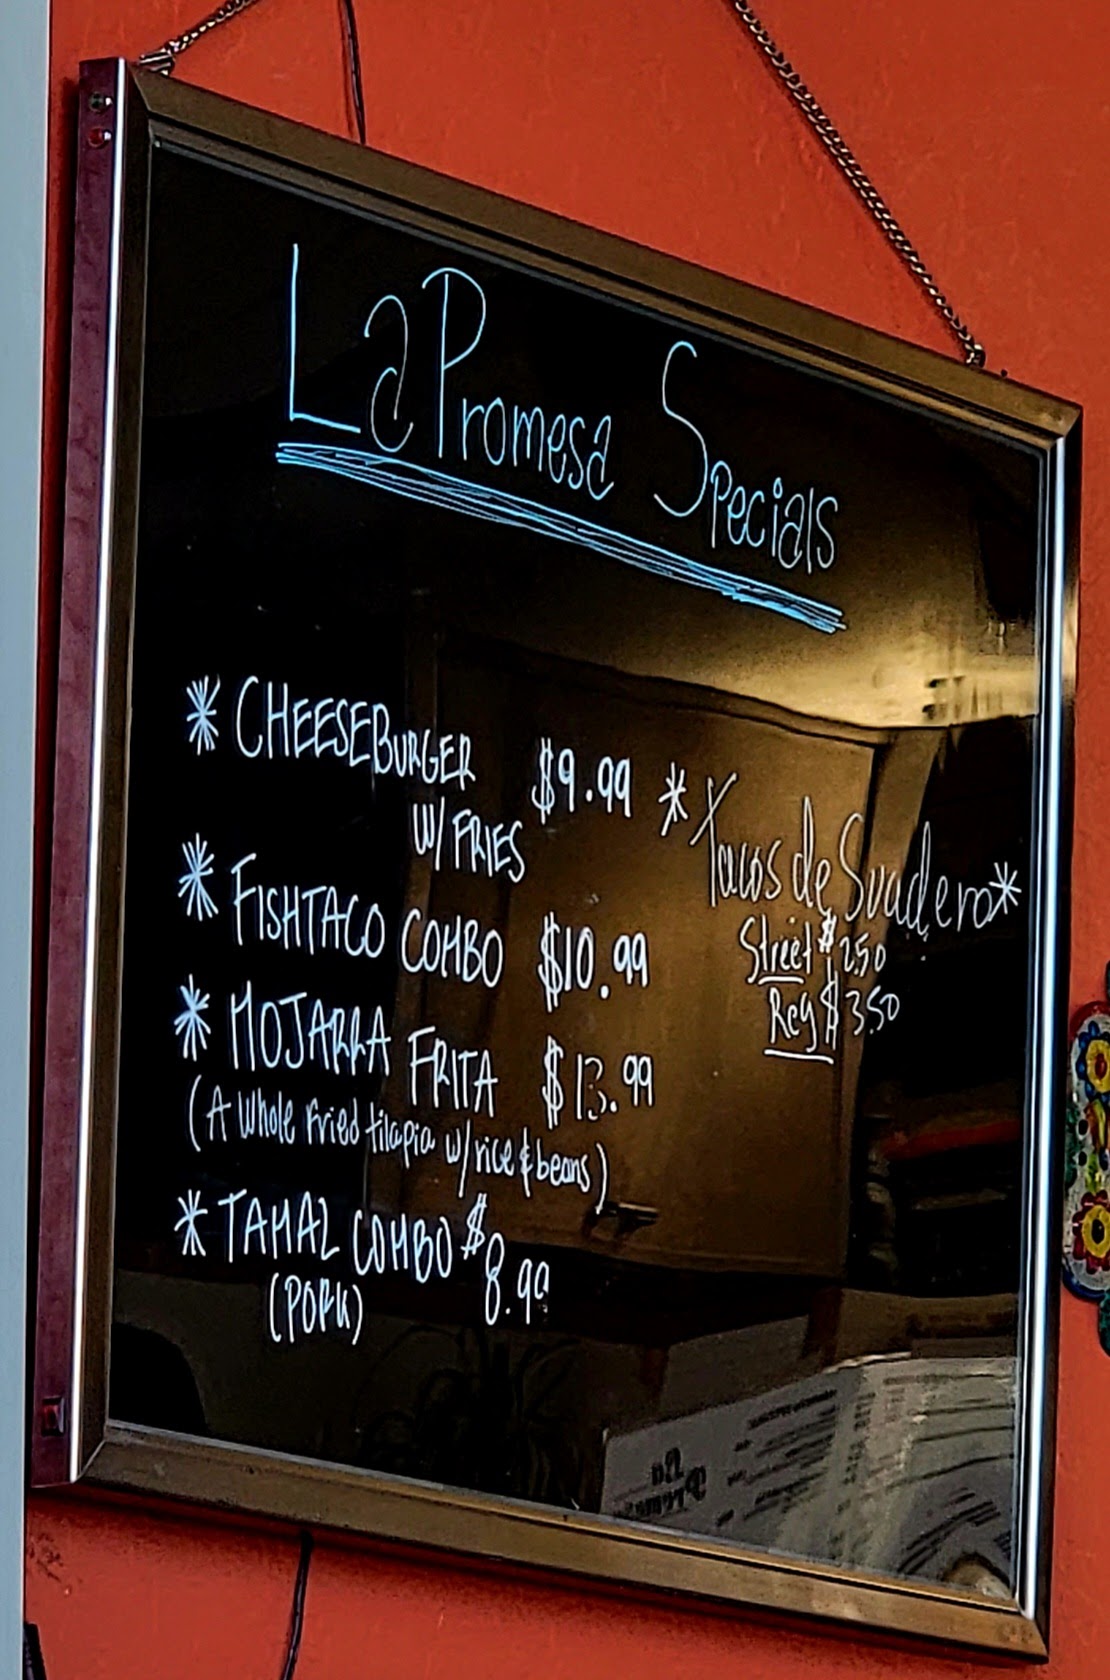 La Promesa Specials
* CHEESEBURGER $9.99
W/ FRIES
* FISHTACO COMBO $10.99
* MOJARRA FRITA $13.99
(A Whole Fried tilapia w/ rice & beans)
* TAMAL COMBO $8.99
(PORK)
* Tacos de Suadero *
Street $2.50
Reg $3.50